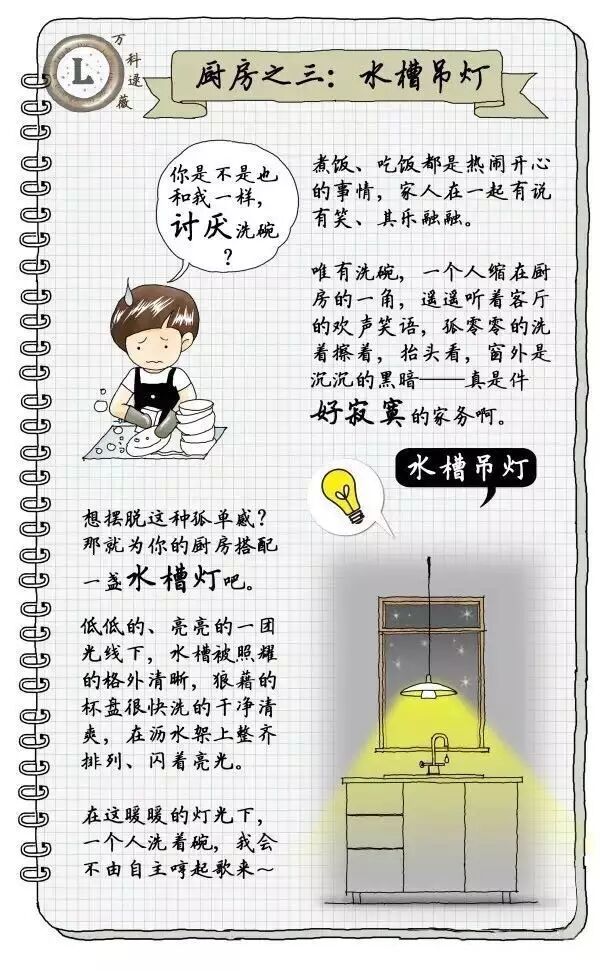 L
万科逯薇
厨房之三：水槽吊灯
你是不是也
和我一样，
讨厌洗碗
？
煮饭、吃饭都是热闹开心
的事情，家人在一起有说
有笑、其乐融融。
唯有洗碗，一个人缩在厨
房的一角，遥遥听着客厅
的欢声笑语，孤零零的洗
着擦着，抬头看，窗外是
沉沉的黑暗——真是件
好寂寞的家务啊。
水槽吊灯
想摆脱这种孤单感？
那就为你的厨房搭配
一盏水槽灯吧。
低低的、亮亮的一团
光线下，水槽被照耀
的格外清晰，狼藉的
杯盘很快洗的干净清
爽，在沥水架上整齐
排列、闪着亮光。
在这暖暖的灯光下，
一个人洗着碗，我会
不由自主哼起歌来～